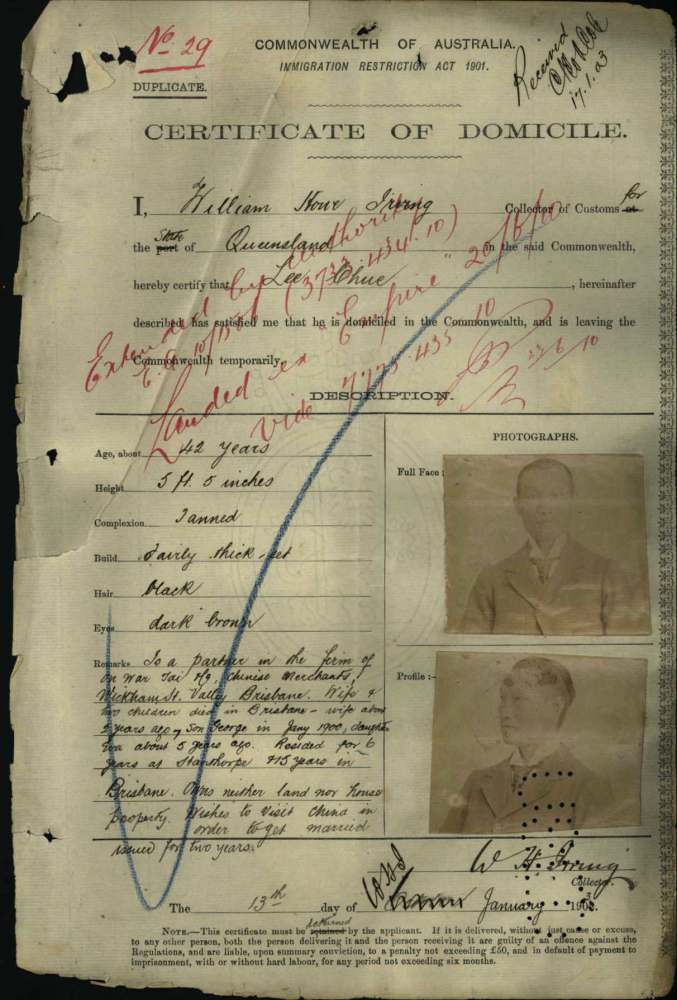 No. 29
COMMONWEALTH OF AUSTRALIA.
IMMIGRATION RESTRICTION ACT 1901.
DUPLICATE.
Received
17.1.03
CERTIFICATE OF DOMICILE.
I, William Howe Irving Collector of Customs at for
the port State of Queensland in the said Commonwealth,
hereby certify that Lee Chue, hereinafter
described, has satisfied me that he is domiciled in the Commonwealth, and is leaving the
Commonwealth temporarily.
Extended by authority
E.A. 10/1584 (3733.434.10)
Landed ex "Empire" 20/6/10
vide 7775.435 10
DESCRIPTION.
Age, about 42 years
Height 5 ft. 5 inches
Complexion Tanned
Build Fairly thick-set
Hair black
Eyes dark brown
Remarks Is a partner in the firm of
On War Tai & Co., Chinese Merchants,
Wickham St. Valley Brisbane. Wife &
two children died in Brisbane - wife about
years ago, Son George in Jany 1900, daughter
Eva about 5 years ago. Resided for 6
years at Stanthorpe & 15 years in
Brisbane. Owns neither land nor house
property. Wishes to visit China in
order to get married
issued for two years.
PHOTOGRAPHS.
Full Face :
Profile :-
W H Irving
Collector.
The 13th day of January 1903.
NOTE.—This certificate must be retained returned by the applicant. If it is delivered, without just cause or excuse,
to any other person, both the person delivering it and the person receiving it are guilty of an offence against the
Regulations, and are liable, upon summary conviction, to a penalty not exceeding £50, and in default of payment to
imprisonment, with or without hard labour, for any period not exceeding six months.